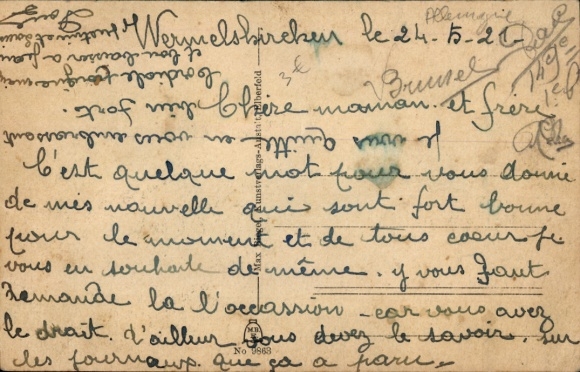 Wermelskirchen le 24-5-21-
Allemagne
Brussel
Chère maman et frère
C'est quelque mot pour vous donné
de mes nouvelle qui sont fort bonne
pour le moment et de tous coeur je
vous en souhaite de même. y vous faut
demandé la l'occassion - car vous avez
le droit. d'ailleur vous devez le savoir. sur
les journaux. que ça a paru.
je vous quitte en vous embrassant
bien fort.
Cordiale poignée
et bon baiser a
Max Kunstverlags-Anstalt, Elberfeld
M.B.
No 9863